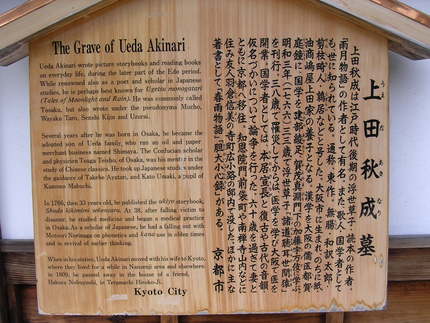 The Grave of Ueda Akinari
Ueda Akinari wrote picture storybooks and reading books
on everyday life, during the later part of the Edo period.
While renowned also as a poet and scholar in Japanese
studies, he is perhaps best known for Ugetsu monogatari
(Tales of Moonlight and Rain). He was commonly called
Tosaku, but also wrote under the pseudonyms Mucho,
Wayaku Taro, Senshi Kijin and Uzurai.
Several years after he was born in Osaka, he became the
adopted son of Ueda family, who ran an oil and paper
merchant business named Shimaya. The Confucian scholar
and physician Tsuga Teisho, of Osaka, was his mentor in the
study of Chinese classics. He took up Japanese study under
the guidance of Takebe Ayatari, and Kato Umaki, a pupil of
Kamono Mabuchi.
In 1766, then 33 years old, he published the storybook,
Shodo Akinai he, at 38, after falling victim to
disaster, he studied medicine and began a medical practice
in Osaka. As a scholar of Japanese, he had a falling out with
Motoori Norinaga on phonetics and kana use in olden times
and in revival of earlier thinking.
When in his sixties, Ueda Akinari moved with his wife to Kyoto,
where they lived for a while in Nanzenji area and elsewhere
In 1809, he passed away in the house of a friend,
Hakura Nobuyoshi, in Teramachi Hirokoji.
Kyoto City
上田秋成墓
うえだあきなり
上田秋成は江戸時代後期の浮世草子・読本の作者。
「雨月物語」の作者として有名。また歌人、国学者として
も世に知られている。通称東作。無腸、和訳太郎、
剪枝畸人、鶉居などと号した。大阪市に生まれ、のちに紙
油商嶋屋上田家の養子となる。漢学を大阪の儒医都賀
庭鐘に、国学を建部綾足、賀茂真淵門下の加藤宇万伎に学ぶ。
明和三年(一七六六)三三歳で浮世草子「諸道聴耳世間猿」
を刊行。三八歳で罹災してからは、医学を学び大阪で医を
開業。国学者としては、本居宣長と復古や古代の音韻、
仮名づかいについて論争を行った。六十歳を過ぎて妻と
ともに京都へ移住、知恩院門前袋町や南禅寺山内などに
住み、友人羽倉信美の寺町広小路の邸内で没した。ほかに主な
著書として「春雨物語」「胆大小心録」がある。
京都市